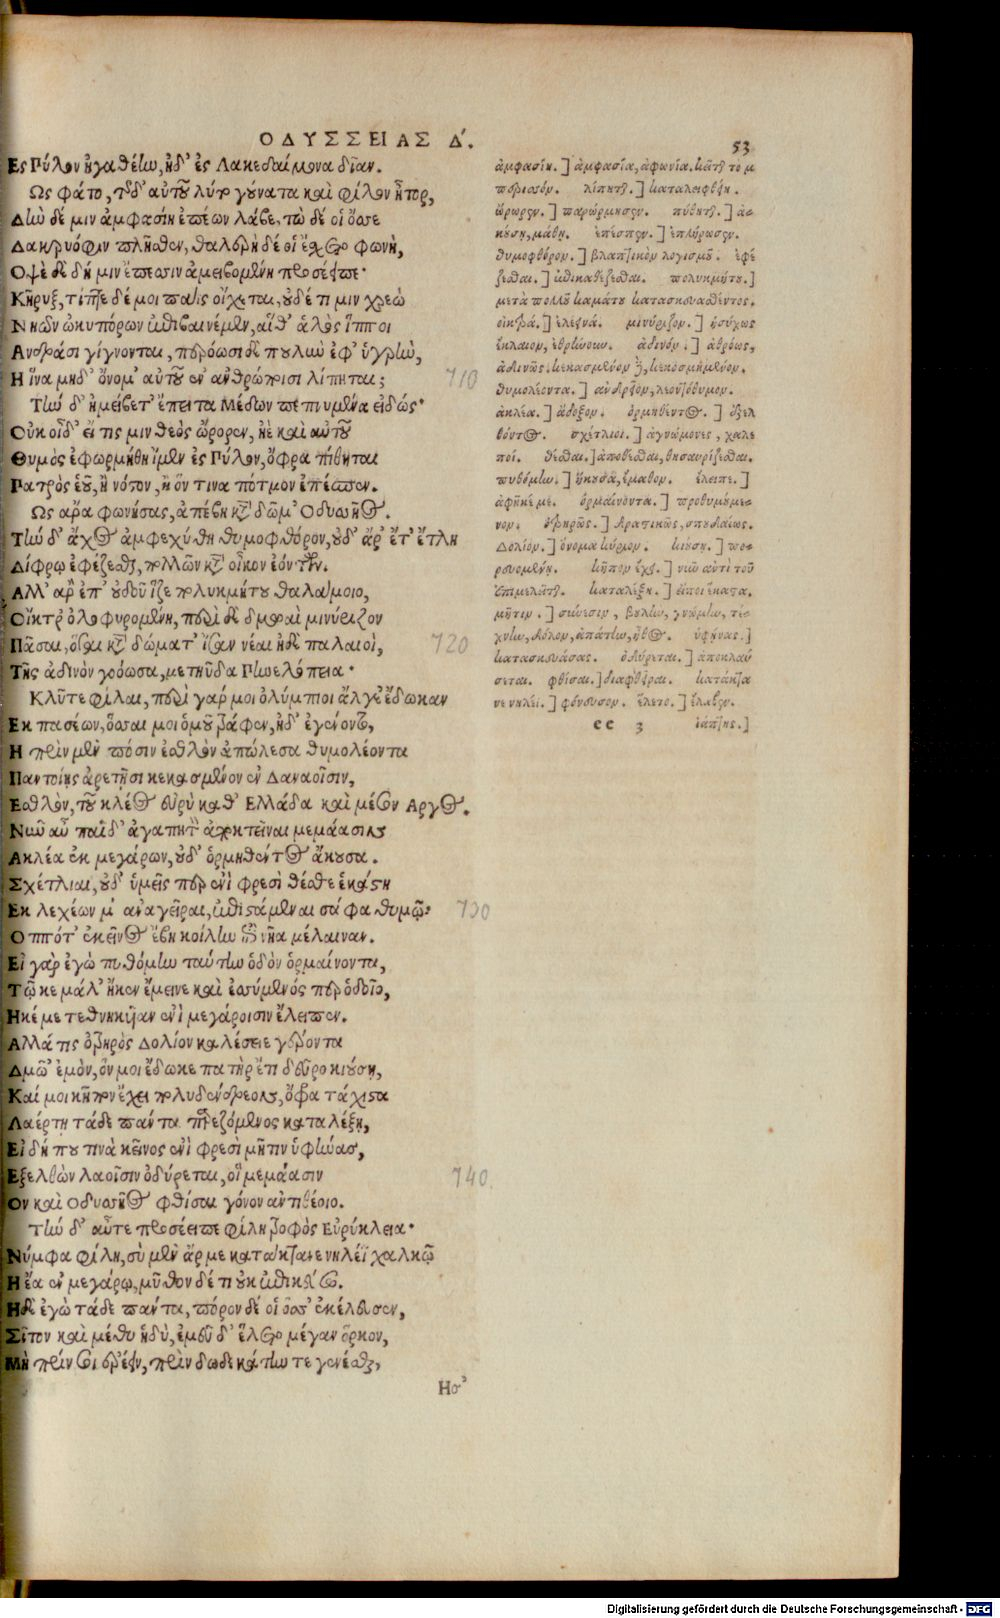 ΟΔΥΣΣΕΙΑΣ Δ'.
53
Ες Πύλον ἠγαθέην, ἠδ' ἐς Λακεδαίμονα δῖαν.
Ως φάτο, τῆς δ' αὐτοῦ λύτο γούνατα καὶ φίλον ἦτορ,
Δὴν δέ μιν ἀμφασίη ἐπέων λάβε, τὼ δέ οἱ ὄσσε
Δακρυόφιν πλῆσθεν, θαλερὴ δέ οἱ ἔσχετο φωνή,
Οψὲ δὲ δή μιν ἔπεσσιν ἀμειβομένη προσέειπε·
Κῆρυξ, τίπτε δέ μοι παῖς οἴχεται, οὐδέ τι μιν χρεὼ
Νηῶν ὠκυπόρων ἐπιβαινέμεν, αἵθ' ἁλὸς ἵπποι
Ανδράσι γίγνονται, περόωσι δὲ πουλὺν ἐφ' ὑγρὴν,
Η ἵνα μηδ' ὄνομ' αὐτοῦ ἐν ἀνθρώποισι λίπηται;
710
Τὴν δ' ἠμείβετ' ἔπειτα Μέδων πεπνυμένα εἰδώς·
Οὐκ οἶδ' εἴ τις μιν θεὸς ὤρορεν, ἠὲ καὶ αὐτοῦ
Θυμὸς ἐφωρμήθη ἴμεν ἐς Πύλον, ὄφρα πύθηται
Πατρὸς ἑοῦ, ἢ νόστον, ἢ ὅν τινα πότμον ἐπέσπεν.
Ως ἄρα φωνήσας, ἀπέβη κατὰ δῶμ' Οδυσῆος.
Τὴν δ' ἄχος ἀμφεχύθη θυμοφθόρον, οὐδ' ἄρ' ἔτ' ἔτλη
Δίφρῳ ἐφέζεσθαι, πολλῶν κατὰ οἶκον ἐόντων.
Αλλ' ἄρ' ἐπ' οὐδοῦ ἷζε πολυκμήτου θαλάμοιο,
Οἴκτρ' ὀλοφυρομένη, περὶ δὲ δμωαὶ μινύριζον
Πᾶσαι, ὅσαι κατὰ δώματ' ἔσαν νέαι ἠδὲ παλαιοὶ,
720
Τῆς ἀδινὸν γοόωσα, μετηύδα Πηνελόπεια·
Κλῦτε φίλαι, περὶ γάρ μοι ὀλύμπιοι ἄλγε' ἔδωκαν
Εκ πασέων, ὅσσαι μοι ὁμοῦ τράφεν, ἠδ' ἐγένοντο,
Η πρὶν μὲν πόσιν ἐσθλὸν ἀπώλεσα θυμολέοντα
Παντοίης ἀρετῇσι κεκασμένον ἐν Δαναοῖσιν,
Εσθλὸν, τοῦ κλέος εὐρὺ καθ' Ελλάδα καὶ μέσον Αργος.
Νῦν αὖ παῖδ' ἀγαπητὸν ἀποκτεῖναι μεμάασιν
Ακλέα ἐκ μεγάρων, οὐδ' ὁρμηθέντος ἄκουσα.
Σχέτλιαι, οὐδ' ὑμεῖς περ ἐνὶ φρεσὶ θέσθε ἑκάστη
Εκ λεχέων μ' ἀναγεῖραι, ἐπιστάμεναι σάφα θυμῷ·
730
Οππότ' ἐκεῖνος ἔβη κοίλην ἐπὶ νῆα μέλαιναν.
Εἰ γὰρ ἐγὼ πυθόμην ταύτην ὁδὸν ὁρμαίνοντα,
Τῷ κε μάλ' ἤκεν ἔμεινε καὶ ἐσσύμενός περ ὁδοῖο,
Ηκέ με τεθνηκῖαν ἐνὶ μεγάροισιν ἔλειπεν.
Αλλά τις ὀτρηρὸς Δολίον καλέσειε γέροντα
Δμῶ' ἐμὸν, ὅν μοι ἔδωκε πατὴρ ἔτι δεῦρο κιούσῃ,
Καί μοι κῆπον ἔχει πολυδένδρεον, ὄφρα τάχιστα
Λαέρτῃ τάδε πάντα παρεζόμενος καταλέξῃ,
Εἰ δή που τινὰ κεῖνος ἐνὶ φρεσὶ μῆτιν ὑφήνας,
Εξελθὼν λαοῖσιν ὀδύρεται, οἳ μεμάασιν
740
Ον καὶ Οδυσῆος φθίσαι γόνον ἀντιθέοιο.
Τὴν δ' αὖτε προσέειπε φίλη τροφὸς Εὐρύκλεια·
Νύμφα φίλη, σὺ μὲν ἄρ με κατάκτανε νηλέϊ χαλκῷ
Η ἔα ἐν μεγάρῳ, μῦθον δέ τι οὐκ ἐπικεύσω.
Ηδε' ἐγὼ τάδε πάντα, πόρον δέ οἱ ὅσσ' ἐκέλευσεν,
Σῖτον καὶ μέθυ ἡδύ, ἐμεῦ δ' ἕλετο μέγαν ὅρκον,
Μὴ πρίν σοι ἐρέειν, πρὶν δωδεκάτην τε γενέσθαι,
Ησ'
ἀμφασίη. ] ἀμφασία, ἀφωνία. κατὰ τὸ μ
περισσόν. λίπηται. ] καταλειφθῇ.
ὤρορεν. ] παρώρμησεν. πύθηται. ] ἀ-
κούσῃ, μάθῃ. ἐπέσπεν. ] ἐπλήρωσεν.
θυμοφθόρον. ] βλαπτικὸν λογισμοῦ. ἐφέ
ζεσθαι. ] ἐπικαθέζεσθαι. πολυκμήτου. ]
μετὰ πολλοῦ καμάτου κατασκευασθέντος.
οἰκτρά. ] ἐλεεινά. μινύριζον. ] ἡσύχως
ἔκλαιον, ἐθρήνουν. ἀδινόν. ] ἀθρόως,
ἀδινῶς. κεκασμένον. ] κεκοσμημένον.
θυμολέοντα. ] ἀνδρεῖον, λεοντόθυμον.
ἀκλέα. ] ἄδοξον. ὁρμηθέντος. ] ἐξελ
θόντος. σχέτλιοι. ] ἀγνώμονες, χαλε
ποί. θέσθαι. ] ἀποθέσθαι, θησαυρίζεσθαι.
πυθόμην. ] ἤκουσα, ἔμαθον. ἔλειπε. ]
ἀφῆκέ με. ὁρμαίνοντα. ] προθυμούμε-
νον. ὀτρηρῶς. ] δραστικῶς, σπουδαίως.
Δολίον. ] ὄνομα κύριον. κιούσῃ. ] πο-
ρευομένῃ. κῆπον ἔχει. ] νῦν ἀντὶ τοῦ
ἐπιμελεῖται. καταλέξῃ. ] εἴποι ἕκαστα.
μῆτιν. ] σύνεσιν, βουλὴν, γνώμην, τέ-
χνην, δόλον, ἀπάτην, ἦθος. ὑφήνας. ]
κατασκευάσας. ὀδύρεται. ] ἀποκλαύ
σεται. φθίσαι. ] διαφθεῖραι. κατάκτα
νε νηλέϊ. ] φόνευσον. ἕλετο. ] ἔλαβεν.
ee 3 ἰάπτῃς. ]
Digitalisierung gefördert durch die Deutsche Forschungsgemeinschaft - DFG